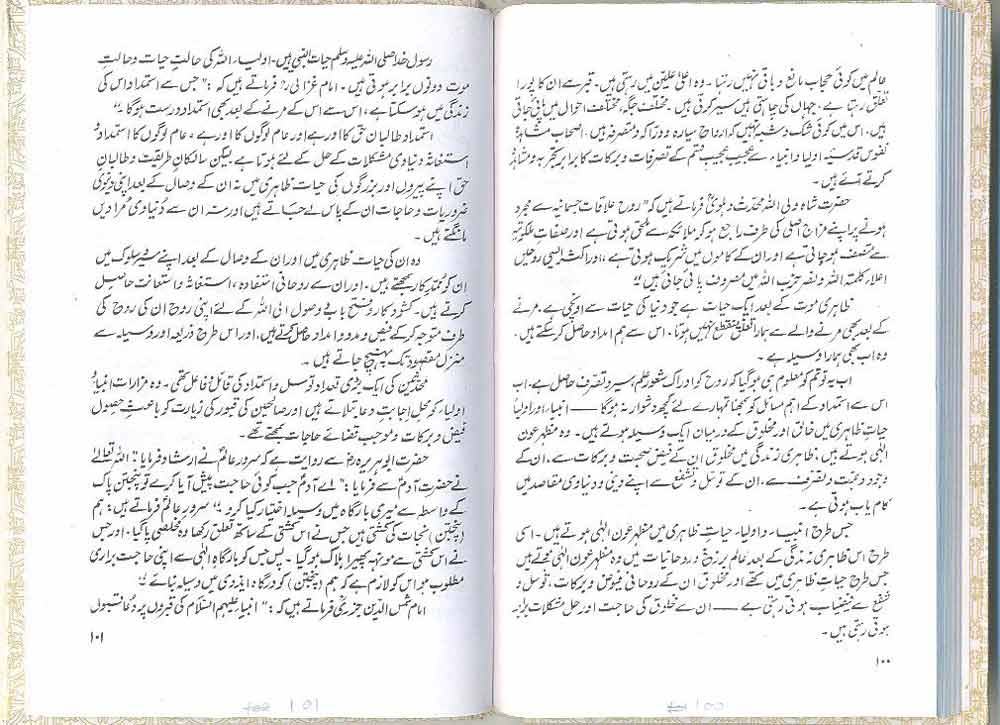 عالم میں کوئی حجاب مانع و باقی نہیں رہتا۔ وہ اعلیٰ علیین میں رہتی ہیں۔ قبر سے ان کا پورا
تعلق رہتا ہے۔ جہاں کی چاہتی ہیں سیر کرتی ہیں۔ مختلف جگہ، مختلف احوال میں پائی جاتی
ہیں۔ اس میں کوئی شک و شبہ نہیں کہ ارواح سیارہ و دوّرا کہ و متصرفہ ہیں۔ اصحاب مشاہدہ
نفوس قدسیہ اولیاء و انبیاء سے عجیب عجیب قسم کے تصرفات و برکات کا برابر تجربہ و مشاہدہ
کرتے آئے ہیں۔
حضرت شاہ ولی اللہ محدث دہلویؒ فرماتے ہیں کہ "روح علاقات جسمانیہ سے مجرد
ہونے پر اپنے مزاج اصلی کی طرف راجع ہو کر ملائکہ سے ملحق ہوتی ہے اور صفات ملکوتیہ
سے متصف ہو جاتی ہے اور ان کے کاموں میں شریک ہوتی ہے، اور اکثر ایسی روحیں
اعلاء کلمتہ اللہ و نصر حزب اللہ میں مصروف پائی جاتی ہیں"
ظاہری موت کے بعد ایک حیات ہے جو دنیا کی حیات سے اونچی ہے۔ مرنے
کے بعد بھی مرنے والے سے ہمارا تعلق منقطع نہیں ہوتا۔ اس سے ہم امداد حاصل کر سکتے ہیں۔
وہ اب بھی ہمارا وسیلہ ہے۔
اب یہ تو تم کو معلوم ہی ہو گیا کہ روح کو ادراک شعور علم سیر و تصرف حاصل ہے۔ اب
اس سے استمداد کے اہم مسائل کو سمجھنا تمہارے لئے کچھ دشوار نہ ہو گا —— انبیاء اور اولیاء
حیات ظاہری میں خالق اور مخلوق کے درمیان ایک وسیلہ ہوتے ہیں۔ وہ مظہر عون
الٰہی ہوتے ہیں۔ ظاہری زندگی میں مخلوق ان کے فیض صحبت و برکات سے، ان کے
وجود و عبت و تصرف سے۔ ان کے توسل و تشفع سے اپنے دینی و دنیاوی مقاصد میں
کام یاب ہوتی ہے۔
جس طرح انبیاء و اولیاء حیات ظاہری میں مظہر عون الٰہی ہوتے ہیں۔ اسی
طرح اس ظاہری زندگی کے بعد عالم برزخ و روحانیات میں وہ مظہر عون الٰہی ہوتے ہیں
جس طرح حیات ظاہری میں تھے اور مخلوق ان کے روحانی فیوض و برکات، توسل و
تشفع سے فیضیاب ہوتی رہتی ہے —— ان سے مخلوق کی حاجت اور حل مشکلات برابر
ہوتی رہتی ہیں۔
۱۰۰
100
رسول خدا صلی اللہ علیہ وسلم حیات النبی ہیں۔ اولیاء اللہ کی حالتِ حیات و حالتِ
موت دونوں برابر ہوتی ہیں۔ امام غزالیؒ فرماتے ہیں کہ: "جس سے استمداد اس کی
زندگی میں ہو سکتا ہے، اس سے اس کے مرنے کے بعد بھی استمداد درست ہو گا۔"
استمداد طالبانِ حق کا اور ہے اور عام لوگوں کا اور ہے، عام لوگوں کا استمداد و
استغاثہ دنیاوی مشکلات کے حل کے لئے ہوتا ہے لیکن سالکانِ طریقت و طالبانِ
حق اپنے پیروں اور بزرگوں کی حیات ظاہری میں نہ ان کے وصال کے بعد اپنی دنیوی
ضروریات و حاجات ان کے پاس لے جاتے ہیں اور نہ ان سے دُنیاوی مُرادیں
مانگتے ہیں۔
وہ ان کی حیات ظاہری میں اور ان کے وصال کے بعد اپنے سیر سلوک میں
ان کو مُمِدّ کار سمجھتے ہیں۔ اور ان سے روحانی استفادہ، استغاثہ و استعانت حاصل
کرتے ہیں۔ کشود کار و فتح باب وصول الی اللہ کے لئے اپنی روح ان کی روح کی
طرف متوجہ کر کے فیض و مدد و امداد حاصل کرتے ہیں، اور اس طرح ذریعہ اور وسیلہ سے
منزل مقصود تک پہنچ جاتے ہیں۔
محدثین کی ایک بڑی تعداد توسل و استمداد کی قائل و فاعل تھی۔ وہ مزارات انبیاءؑ و
اولیاء کو محل اجابتِ دعا بتلاتے ہیں اور صالحین کی قبور کی زیارت کو باعثِ حصول
فیض و برکات و موجب قضائے حاجات سمجھتے تھے۔
حضرت ابو ہریرہؓ سے روایت ہے کہ سرور عالمؐ نے ارشاد فرمایا: "اللہ تعالیٰ
نے حضرت آدمؑ سے فرمایا: "اے آدمؑ جب کوئی حاجت پیش آیا کرے تو پنجتن پاک
کے واسطہ سے میری بارگاہ میں وسیلہ اختیار کیا کرو"، سرورِ عالم فرماتے ہیں: ہم
(پنجتن) نجات کی کشتی ہیں جس نے اس کشتی کے ساتھ تعلق رکھا وہ مخلصی پا گیا۔ اور جس
نے اس کشتی سے مونہہ پھیرا ہلاک ہو گیا۔ پس جس کو بارگاہِ الٰہی سے اپنی حاجت براری
مطلوب ہو اس کو لازم ہے کہ ہم (پنجتن) کو درگاہ ایزدی میں وسیلہ بنائے"
امام شمس الدین جزریؒ فرماتے ہیں کہ: "انبیاء علیہم السلام کی قبروں پر دُعا قبول
۱۰۱
101